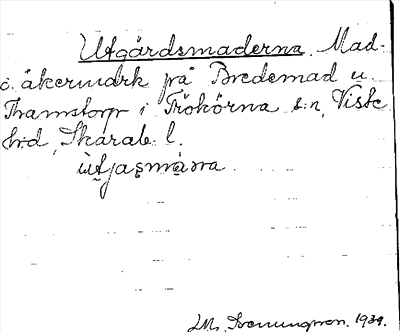 Utgärdsmaderna. Mad-
o. åkermark på Bredemad u.
Thamstorp i Frökörna s:n, Viste
h:d, Skarab. l.
ùtjasmàɷa
1939.